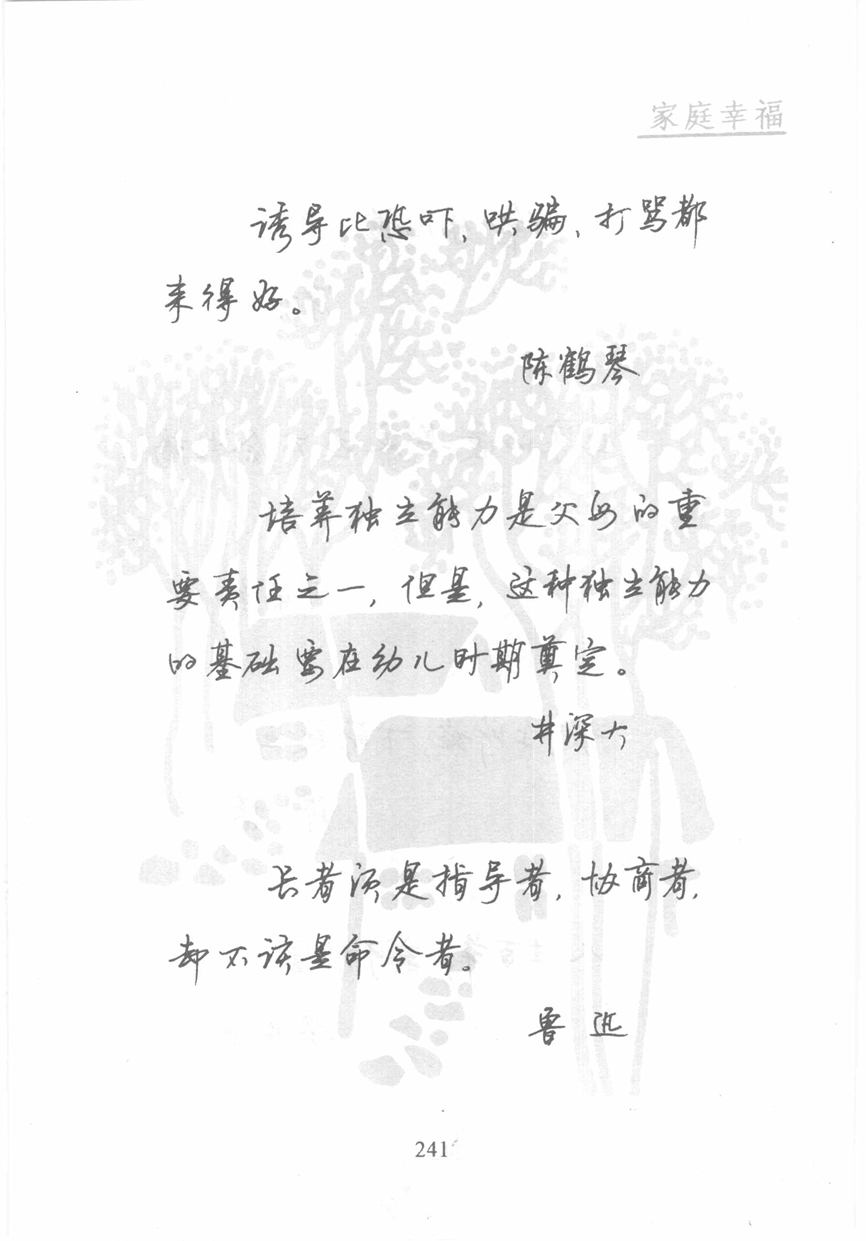 家庭幸福
诱导比恐吓、哄骗、打骂都
来得好。
陈鹤琴
培养独立能力是父母的重
要责任之一，但是，这种独立能力
的基础要在幼儿时期奠定。
井深大
长者须是指导者，协商者，
却不该是命令者。
鲁迅
241